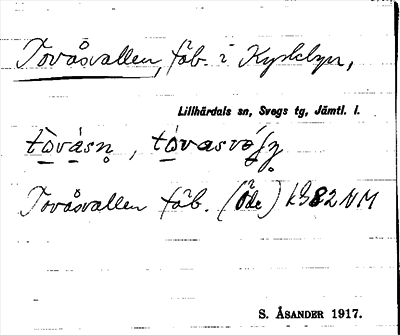 Tovåsvallen, fäb. i Kyrkbyn,
Lillhärdals sn, Svegs tg, Jämtl. l.
Tovåsvallen fäb. (Öde)
S. ÅSANDER 1917.